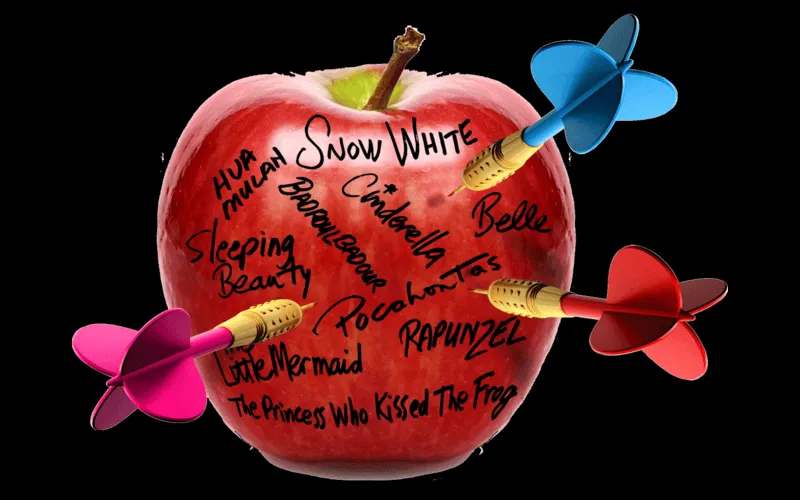 SNOW WHITE
HUA
MULAN
BADROULBADOUR
Cinderella
Belle
Sleeping
Beauty
Pocahontas
RAPUNZEL
The
Little Mermaid
The Princess Who Kissed The Frog